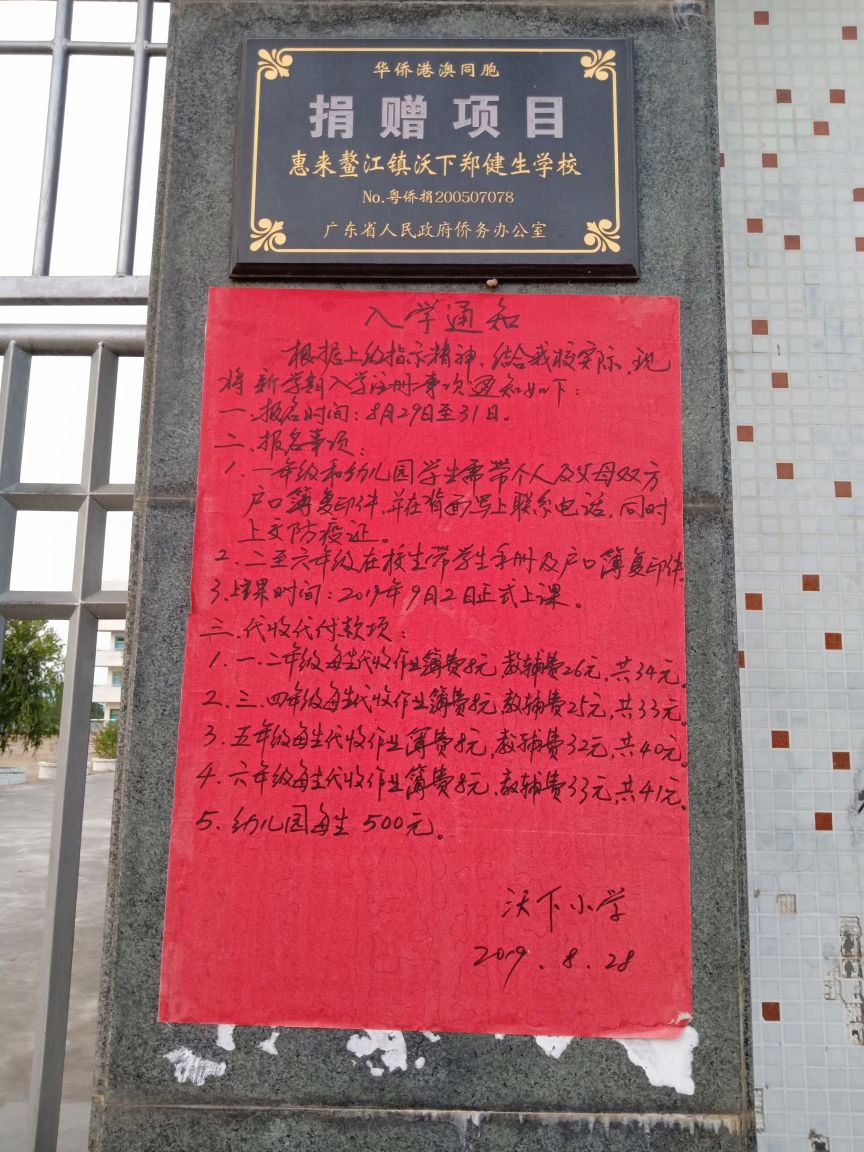 华侨港澳同胞
捐赠项目
惠来鳌江镇沃下郑健生学校
No.粤侨捐200507078
广东省人民政府侨务办公室
入学通知
根据上级指示精神，结合我校实际，现
将新学期入学注册事项通知如下：
一、报名时间：8月29日至31日。
二、报名事项：
1、一年级和幼儿园学生需带个人及父母双方
户口簿复印件，并在背面写上联系电话，同时
上交防疫证。
2、二至六年级在校生带学生手册及户口簿复印件。
3、上课时间：2019年9月2日正式上课。
三、代收代付款项：
1、一、二年级每生代收作业簿费8元，教辅费26元，共34元。
2、三、四年级每生代收作业簿费8元，教辅费25元，共33元。
3、五年级每生代收作业簿费8元，教辅费32元，共40元。
4、六年级每生代收作业簿费8元，教辅费33元，共41元。
5、幼儿园每生500元。
沃下小学
2019.8.28